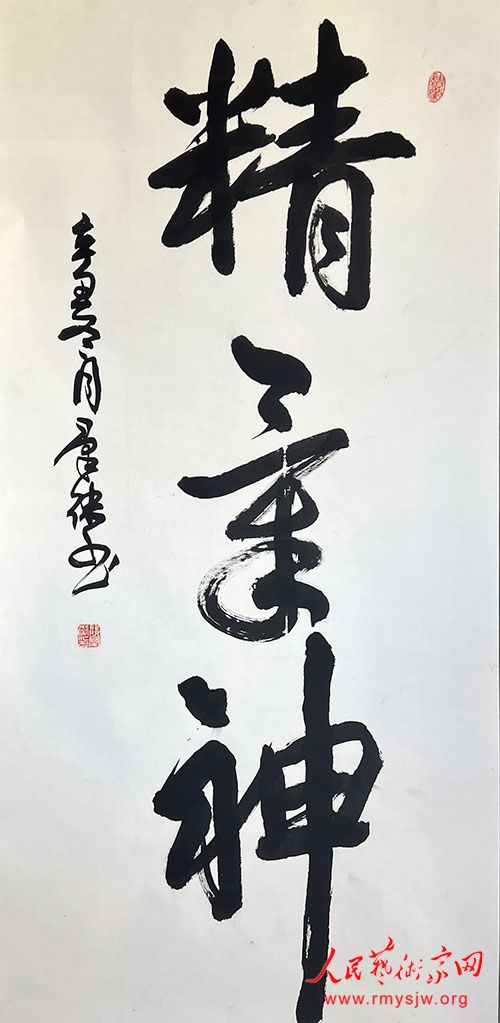 精氣神
辛丑冬月
书
人民艺术家网
www.rmysjw.org